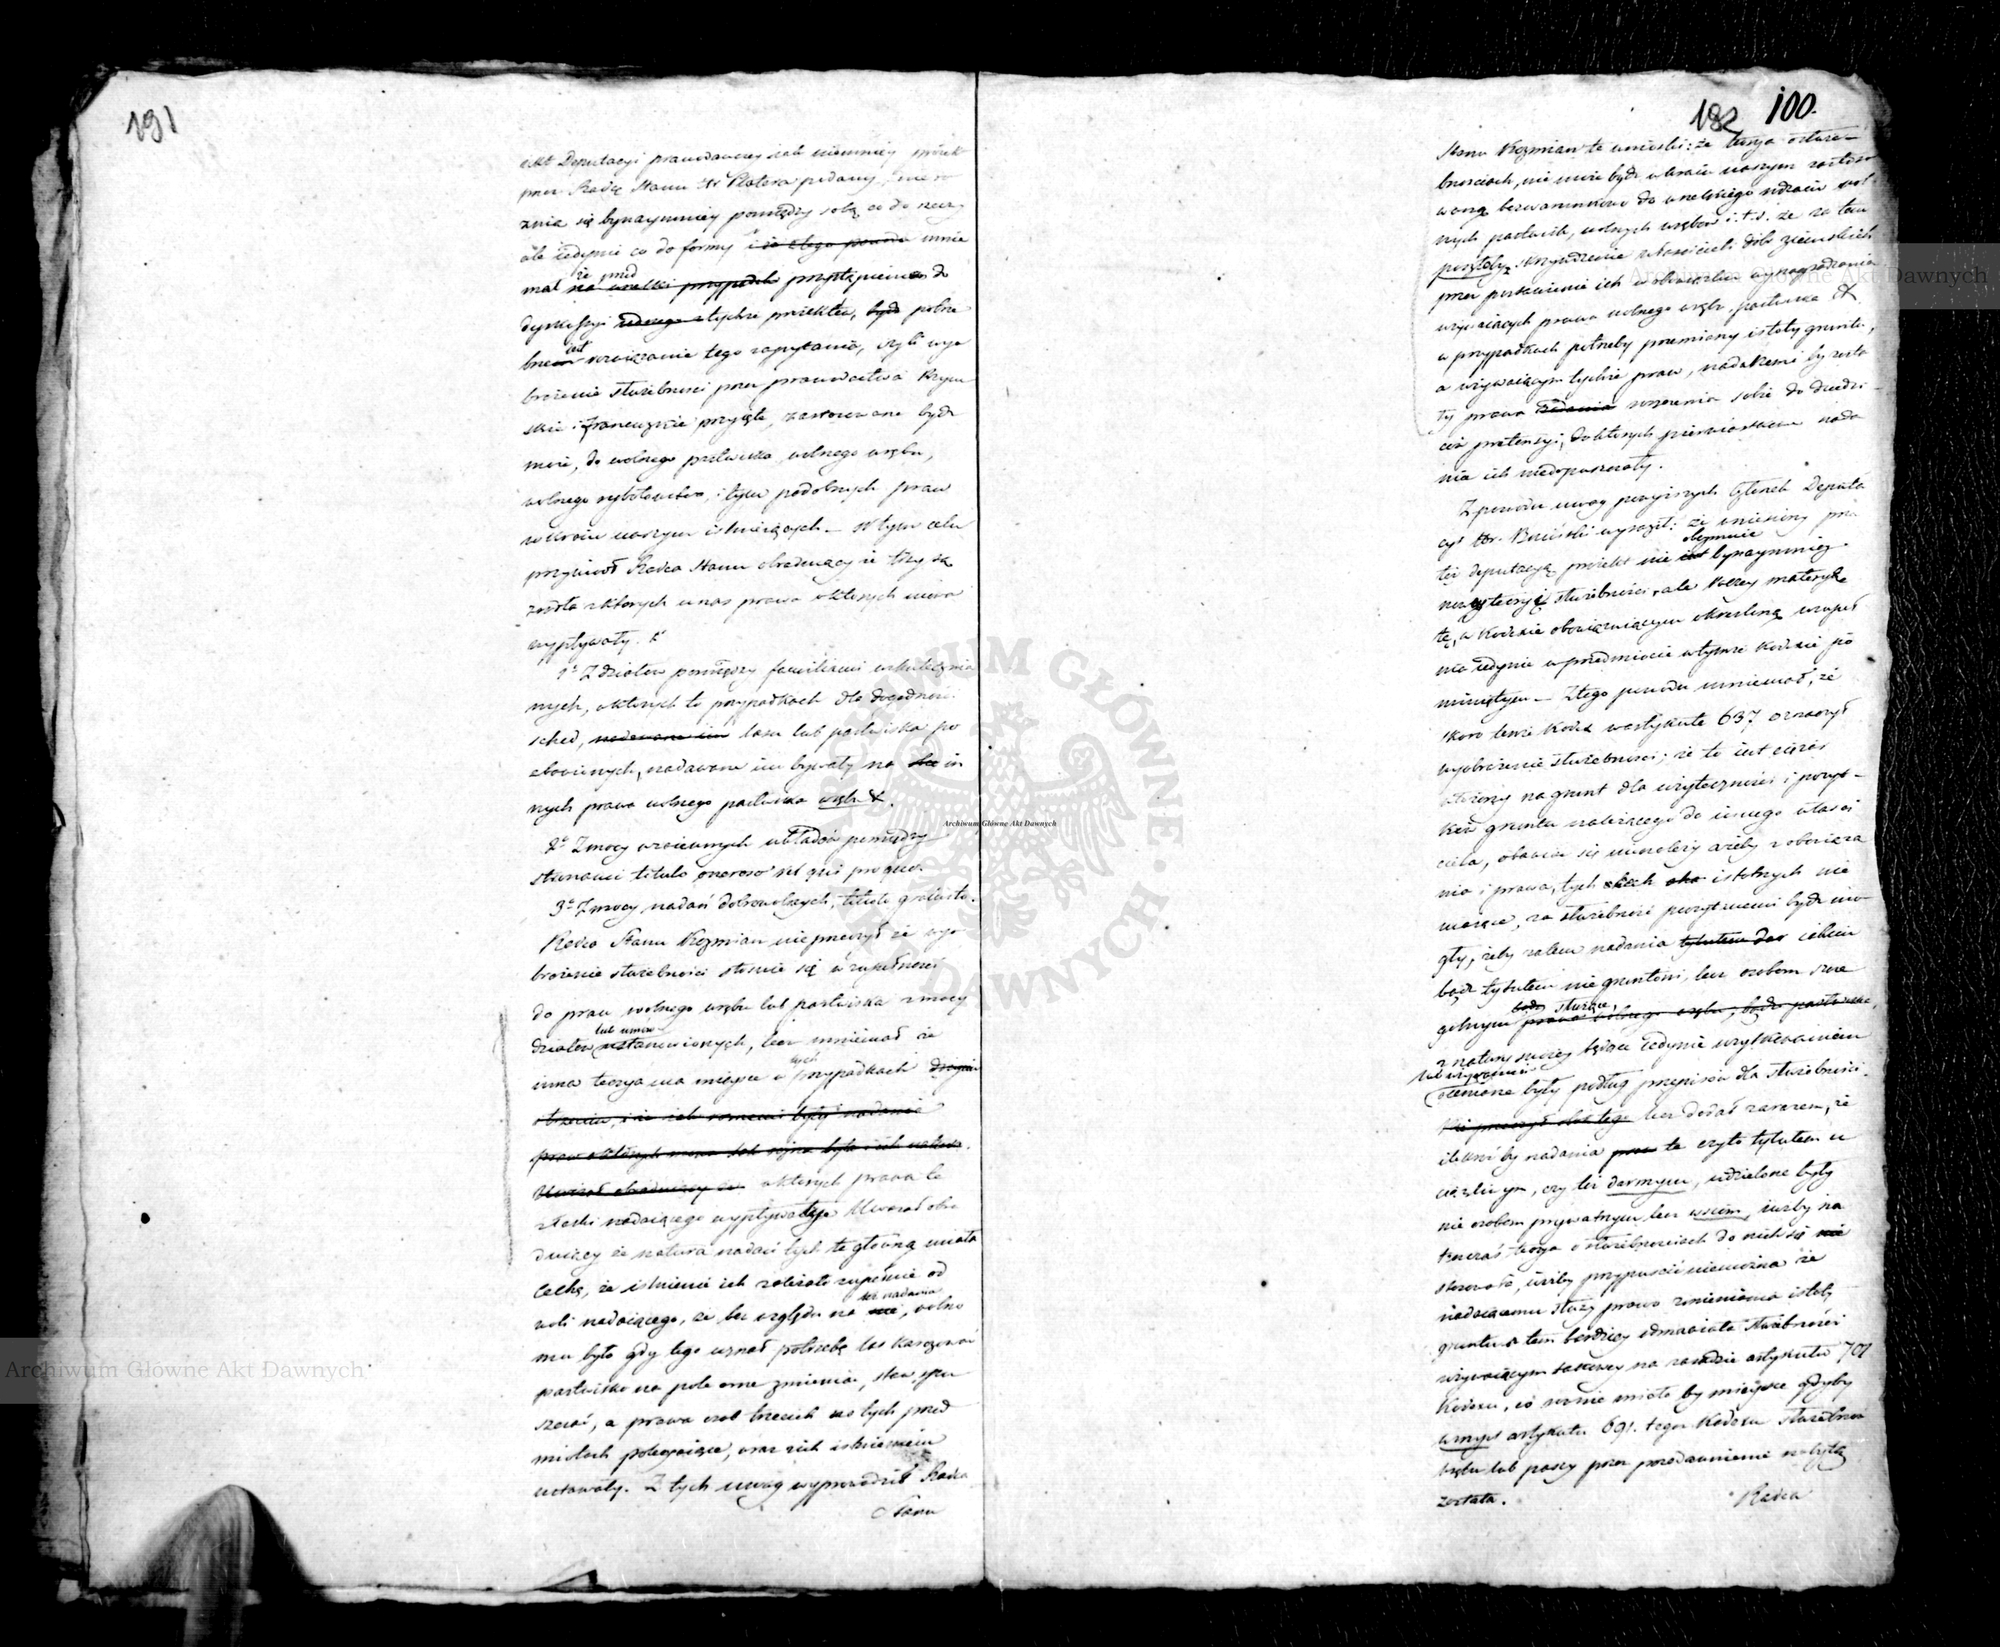 191
jekt Deputacyi prawodawczey jak niemniey projekt
przez Radcę Stanu Hr Platera podany, nie ró
żnią się bynaymniey pomiędzy sobą co do rzeczy
ale jedynie co do formy i z tego powodu mnie
mał że przed przystąpieniem do
dyskussyi tychże projektów, było potrze
bnem jest rozwiązanie tego zapytania, czyli wyo
brażenie służebności przez prawodactwa Rzym
skie i Francuzkie przyięte, zastosowane bydź
może, do wolnego pastwiska, wolnego wrębu,
wolnego rybołowstwa, i tym podobnych praw
w kraiu naszym istnieiących. W tym celu
przywiódł Radca Stanu obradujący że trzy są
źródła z których u nas prawa o których mowa
wypływały.
1° Z działów pomiędzy familiami uskutecznia
nych, w których to przypadkach dla dogodności
sched, nadawane im lasu lub pastwiska po
zbawionych, nadawane im bywały na in
nych prawa wolnego pastwiska wrębu &.
2° Z mocy wzaiemnych układów pomiędzy
stronami titulo oneroso vel quid pro quo.
3° Z mocy nadań dobrowolnych, titulo gratuito.
Radca Stanu Koźmian nie przeczył że wyo
brażenie służebności stosuie się w zupełności
do praw wolnego wrębu lub pastwiska z mocy
lub umów
działów ustanowionych, lecz mniemał że
inna teorya ma mieysce w tych przypadkach
w których prawa te
z łaski nadaiącego wypływaią. Uważał obra
duiący że natura nadań tych tę główną miała
cechę, że istnienie ich zależało zupełnie od
woli nadaiącego, że bez względu na też nadania, wolno
mu było gdy tego uznał potrzebę las karczować
pastwisko na pole orne zmieniać, staw spu
szczać, a prawa osób trzecich na tych przed
miotach polegaiące, wraz z ich istnieniem
ustawały. Z tych uwag wyprowadził Radca
Stanu
182 100.
Stanu Koźmian te wnioski: że teorya o służe
bnościach, nie może bydź w kraiu naszym zastoso
waną bezwarunkowo do wszelkiego rodzaiu wol
nych pastwisk, wolnych wrębów i. t. d. że za tem
poszłoby skrzywdzenie właścicieli dóbr ziemskich
przez postawienie ich w obowiązku wynagrodzenia
używaiących prawa wolnego wrębu, pastwiska &
w przypadkach potrzeby przemiany istoty gruntu,
a używaiącym tychże praw, nadałemi by zosta
ły prawa roszczenia sobie do dziedzi
ca pretensyi, do których pierwiastkowe nada
nia ich niedopuszczały.
Z powodu uwag powyższych Członek Deputa
cyi Hr. Biciński wyraził: że wniesiony przez
też deputacyą projekt nie obeymuie bynaymniey
nowey teoryi służebności, ale raczey materyą
tę, w Kodexie obowiązuiącym określoną uzupeł
nia jedynie w przedmiocie w tymże Kodexie po
miniętym. Z tego powodu mniemał, że
skoro tenże Kodex w artykule 637 oznaczył
wyobrażenie służebności; że to jest ciężar
włożony na grunt dla użyteczności i pożyt
ku gruntu należącego do innego właści
ciela, obawiać się nienależy ażeby zobowiąza
nia i prawa, tych cech istotnych nie
maiące, za służebności poczytanemi bydź mo
gły, żeby zatem nadania jakim
bądź tytułem nie gruntowi, lecz osobom szcze
gólnym służące,
z natury swoiey będąc jedynie użytkowaniem
lub używaniem
ocenione były podług przepisów dla służebności.
lecz dodał zarazem, że
jeśliby nadania te czyto tytułem u
ciążliwym, czy też darmym, udzielone były
nie osobom prywatnym lecz wsiom, iużby na
tenczas teorya o służebnościach do nich się
stosowała, iużby przypuścić niemożna że
nadaiącemu służy prawo zmienienia istoty
gruntu a tem bardziey odmawiania służebności
używaiącym takowey na zasadzie artykułu 701
Kodexu, co równie miało by mieysce gdyby
w myśl artykułu 691. tegoż Kodexu służebność
wrębu lub paszy przez przedawnienie nabytą
została.
Radca
Archiwum Główne Akt Dawnych
Archiwum Główne Akt Dawnych
Archiwum Główne Akt Dawnych
ARCHIWUM GŁÓWNE AKT DAWNYCH